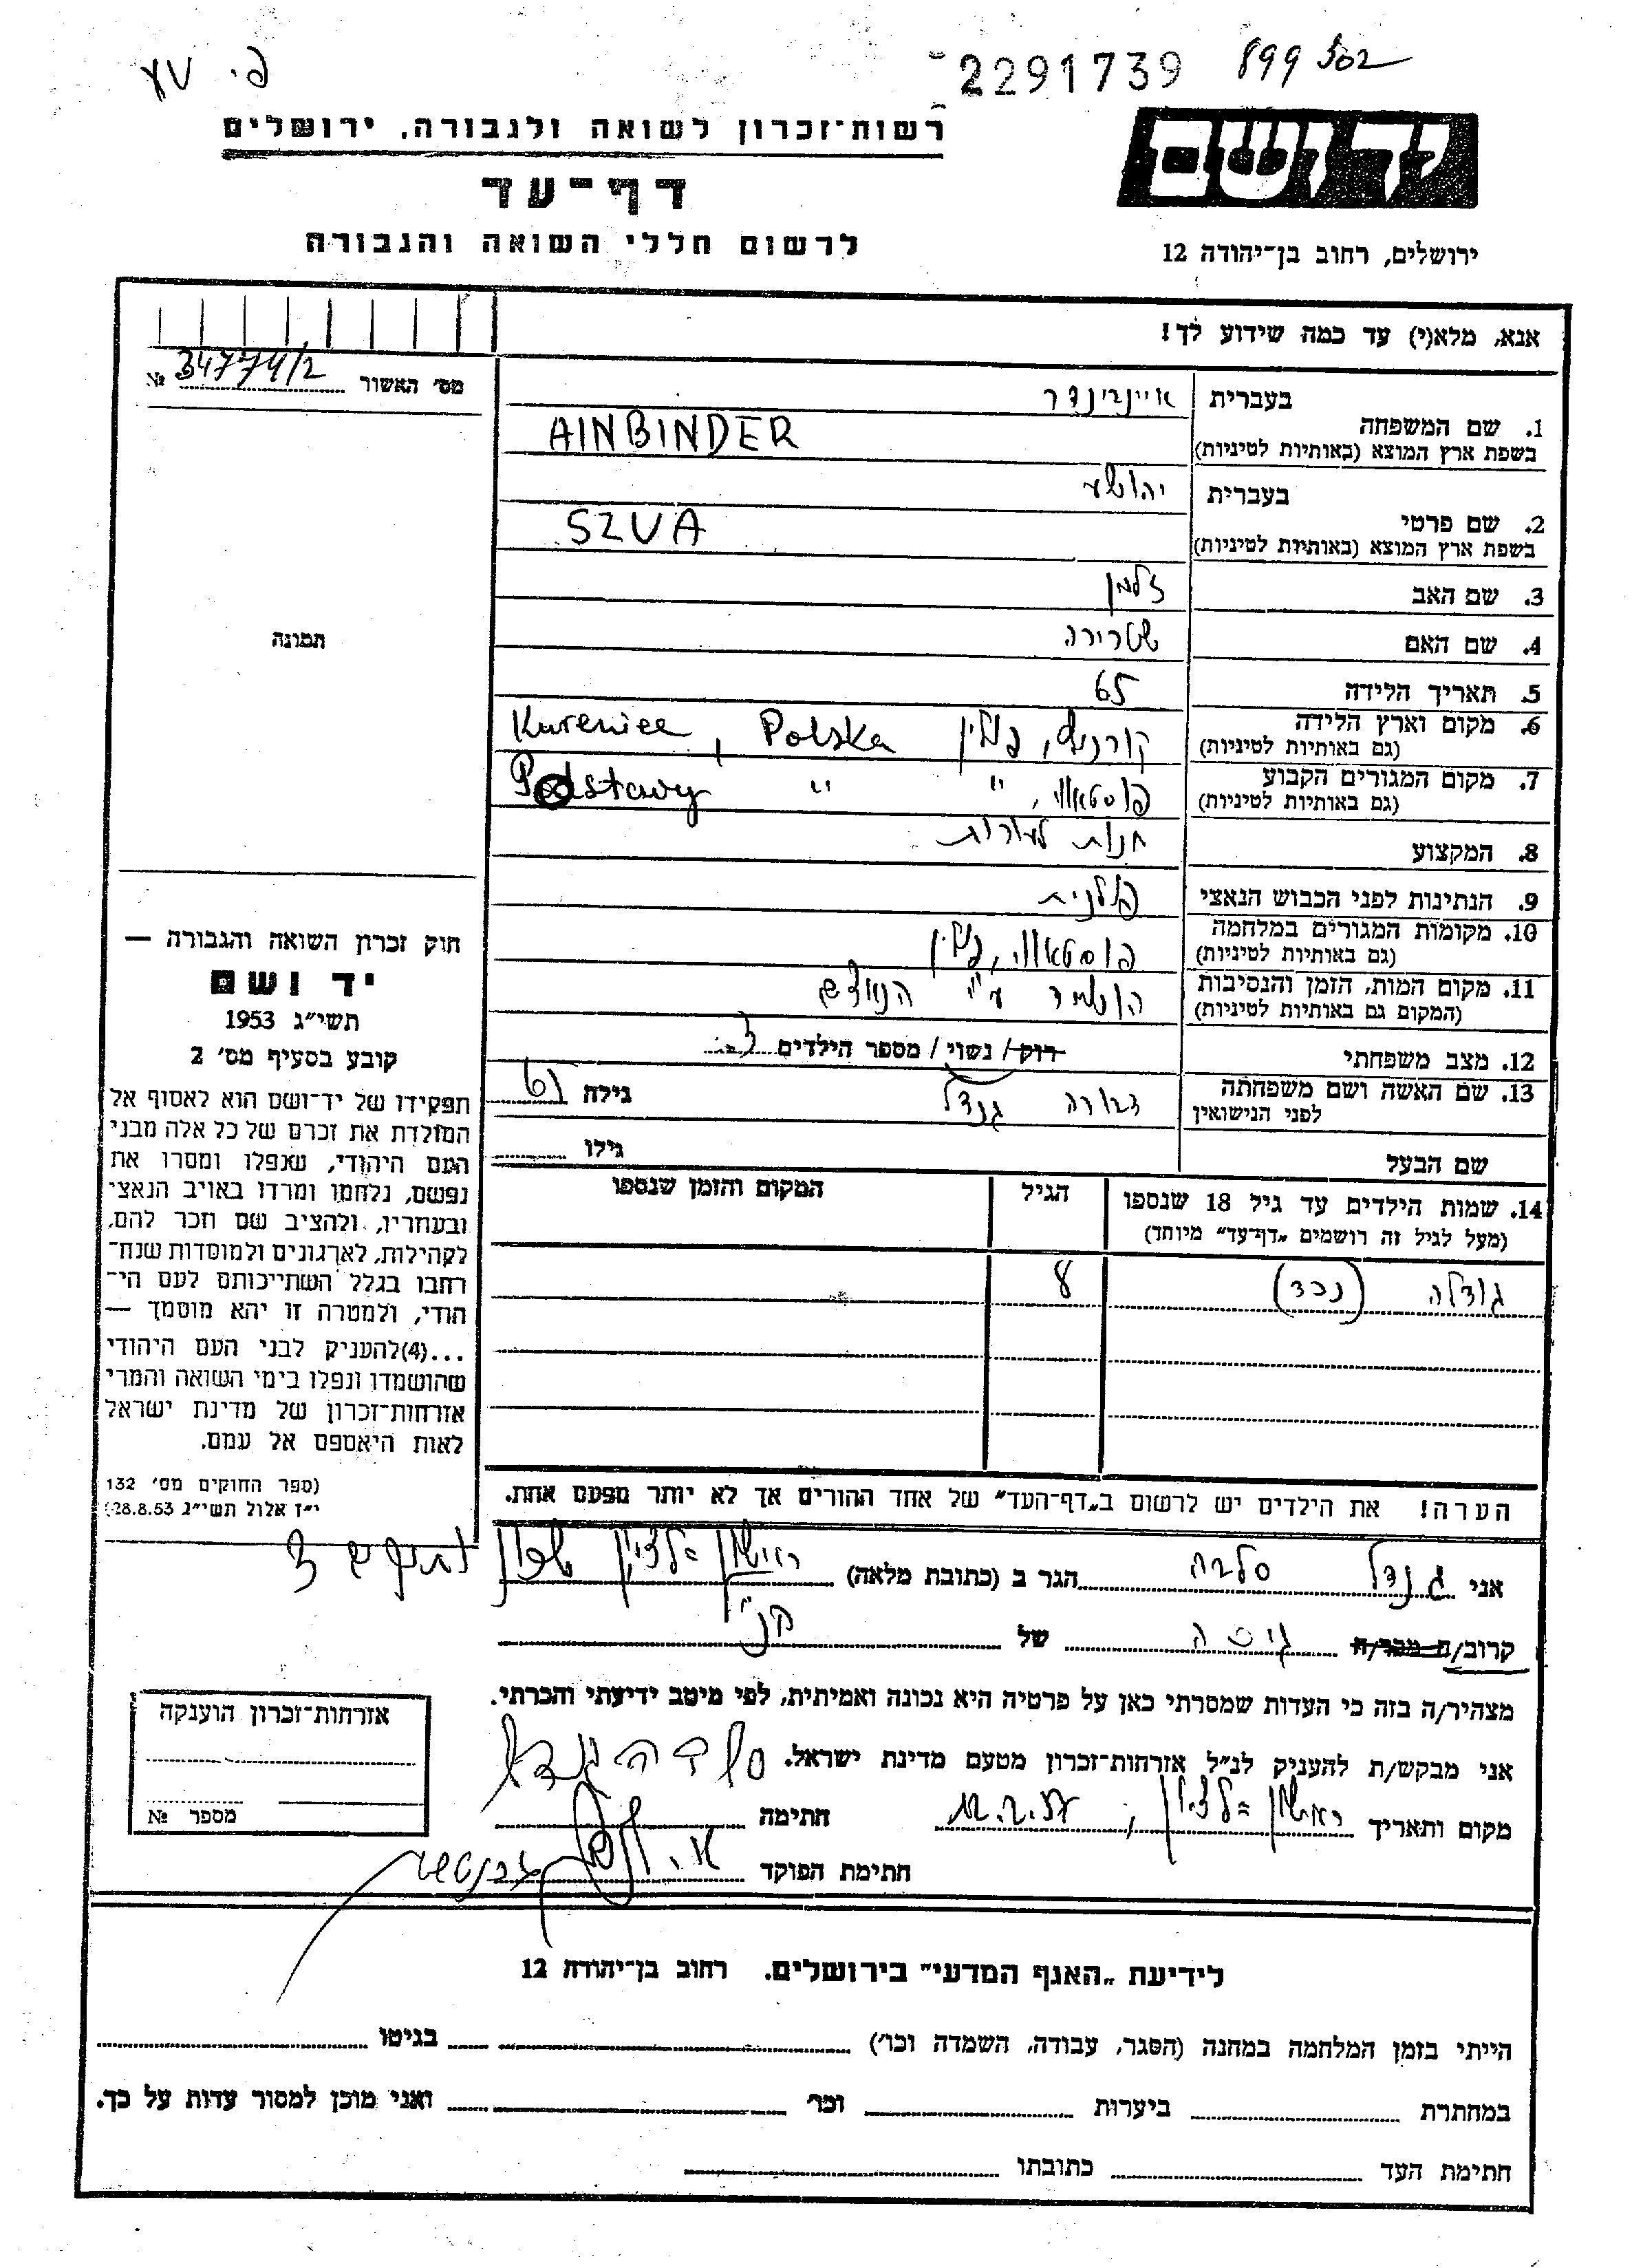 פ. עע
2291739 899 502
רשות־זכרון לשואה ולגבורה, ירושלים
דף־עד
לרשום חללי השואה והגבורה
יד ושם
ירושלים, רחוב בן־יהודה 12
אנא, מלא(י) עד כמה שידוע לך!
מס׳ האשור 34774/2 №
תמונה
1. שם המשפחה בעברית איינבינדר
בשפת ארץ המוצא (באותיות לטיניות) AINBINDER
2. שם פרטי בעברית יהושע
בשפת ארץ המוצא (באותיות לטיניות) SZUA
3. שם האב זלמן
4. שם האם
5. תאריך הלידה 65
6. מקום וארץ הלידה קורניץ, פולין Polska , Kureniec
(גם באותיות לטיניות)
7. מקום המגורים הקבוע פוסטאווי, " " Postawy
(גם באותיות לטיניות)
8. המקצוע חנות לעורות
9. הנתינות לפני הכבוש הנאצי פולנית
10. מקומות המגורים במלחמה פוסטאווי, פולין
(גם באותיות לטיניות)
11. מקום המות, הזמן והנסיבות הושמד ע"י הנאצים
(המקום גם באותיות לטיניות)
12. מצב משפחתי רוק / נשוי / מספר הילדים 3
13. שם האשה ושם משפחתה דבורה גנדל גילה 61
לפני הנישואין
שם הבעל גילו
14. שמות הילדים עד גיל 18 שנספו הגיל המקום והזמן שנספו
(מעל לגיל זה רושמים „דף־עד” מיוחד)
גודלה (נכד) 8
הערה! את הילדים יש לרשום ב„דף־העד” של אחד ההורים אך לא יותר מפעם אחת.
חוק זכרון השואה והגבורה —
יד ושם
תשי״ג 1953
קובע בסעיף מס׳ 2
תפקידו של יד־ושם הוא לאסוף אל
המולדת את זכרם של כל אלה מבני
העם היהודי, שנפלו ומסרו את
נפשם, נלחמו ומרדו באויב הנאצי
ובעוזריו, ולהציב שם וזכר להם,
לקהילות, לארגונים ולמוסדות שנח־
רבו בגלל השתייכותם לעם הי־
הודי, ולמטרה זו יהא מוסמך —
...(4)להעניק לבני העם היהודי
שהושמדו ונפלו בימי השואה והמרי
אזרחות־זכרון של מדינת ישראל
לאות היאספם אל עמם.
(ספר החוקים מס׳ 132
י״ז אלול תשי״ג 28.8.53)
אני גנדל סלבה הגר ב (כתובת מלאה) ראשון לציון שכון ותיקים 3
קרוב/ה מכר/ה גיסה של הנ"ל
מצהיר/ה בזה כי העדות שמסרתי כאן על פרטיה היא נכונה ואמיתית, לפי מיטב ידיעתי והכרתי.
אני מבקש/ת להעניק לנ״ל אזרחות־זכרון מטעם מדינת ישראל.
מקום ותאריך ראשון לציון, 12.2.57 חתימה
חתימת הפוקד
אזרחות־זכרון הוענקה
מספר №
לידיעת „האגף המדעי” בירושלים. רחוב בן־יהודה 12
הייתי בזמן המלחמה במחנה (הסגר, עבודה, השמדה וכו׳) בגיטו
במחתרת ביערות וכו׳ ואני מוכן למסור עדות על כך.
חתימת העד כתובתו